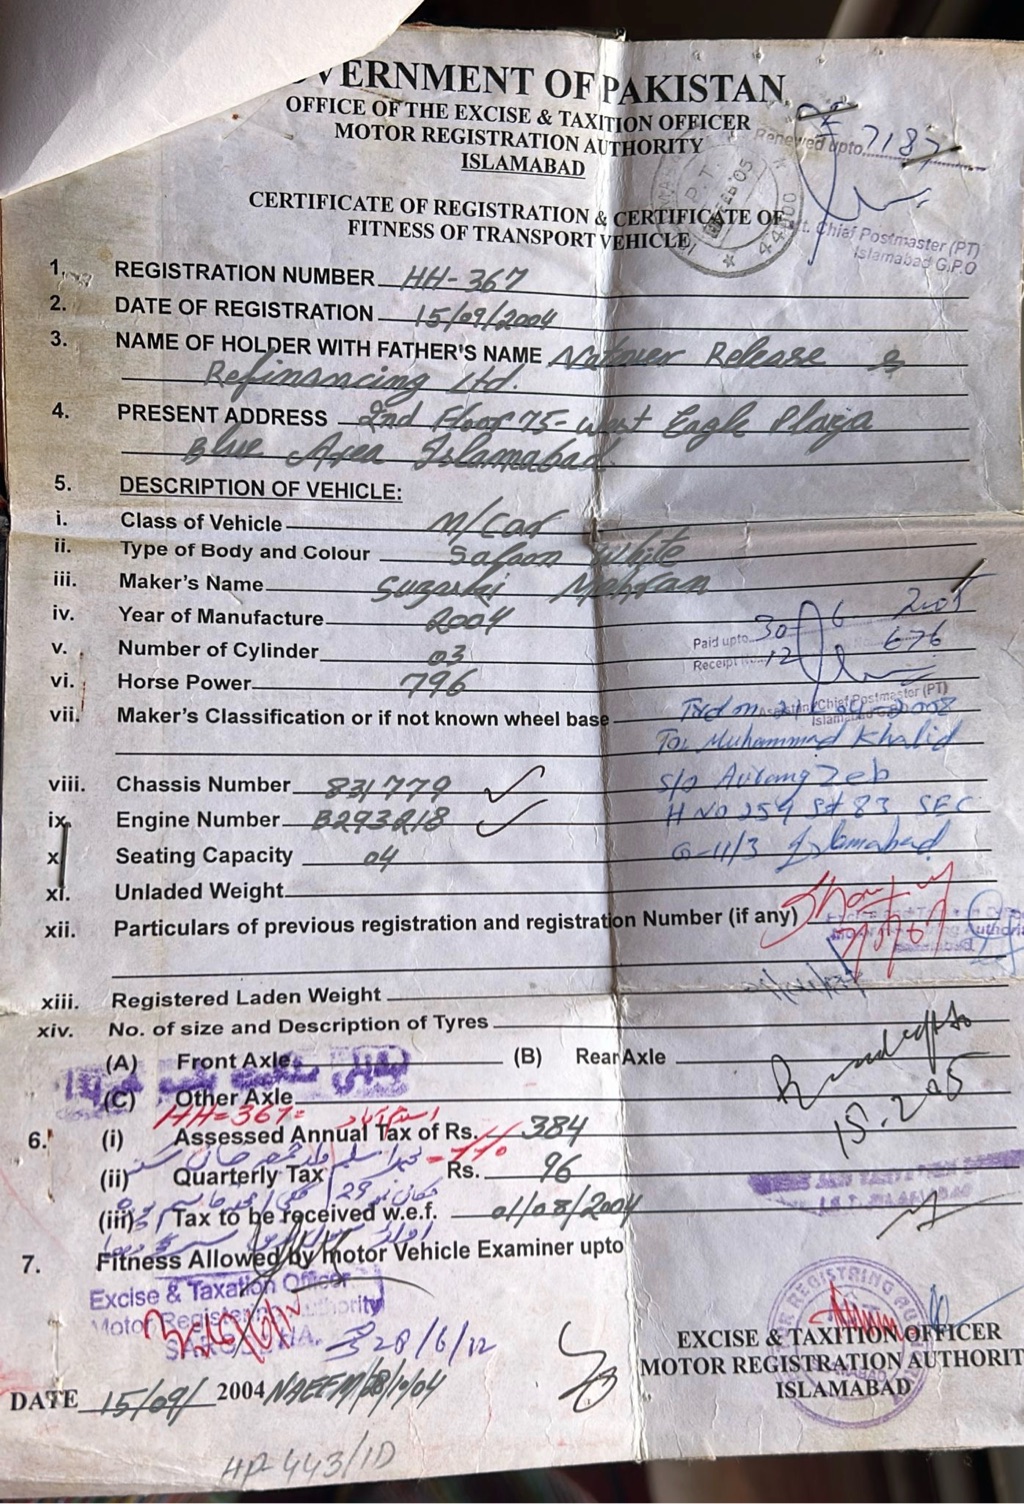 OVERNMENT OF PAKISTAN
OFFICE OF THE EXCISE & TAXITION OFFICER
MOTOR REGISTRATION AUTHORITY
ISLAMABAD
Renewed upto 7187
CERTIFICATE OF REGISTRATION & CERTIFICATE OF
FITNESS OF TRANSPORT VEHICLE
P.T.
FEB 05
44000
Chief Postmaster (PT)
Islamabad G.P.O
1. REGISTRATION NUMBER HH-367
2. DATE OF REGISTRATION 15/09/2004
3. NAME OF HOLDER WITH FATHER'S NAME Natover Release &
Refinancing Ltd.
4. PRESENT ADDRESS 2nd Floor 75-west Eagle Plaza
Blue Area Islamabad
5. DESCRIPTION OF VEHICLE:
i. Class of Vehicle M/Car
ii. Type of Body and Colour Saloon White
iii. Maker's Name Suzuki Mehran
iv. Year of Manufacture 2004
Paid upto 30 6 2005
v. Number of Cylinder 03
Receipt 12 676
vi. Horse Power 796
Assistant/Chief Postmaster (PT)
Islamabad G.P.O
vii. Maker's Classification or if not known wheel base
Trd on 21 2008
To: Muhammad Khalid
viii. Chassis Number 831779
S/o Aurang Zeb
ix. Engine Number B293218
H No 254 St 83 SEC
x. Seating Capacity 04
G-11/3 Islamabad
xi. Unladed Weight
xii. Particulars of previous registration and registration Number (if any)
xiii. Registered Laden Weight
xiv. No. of size and Description of Tyres
(A) Front Axle (B) Rear Axle
(C) Other Axle
15.2.05
HH=367= اسلام آباد
6. (i) Assessed Annual Tax of Rs. 384
(ii) Quarterly Tax Rs. 96
(iii) Tax to be received w.e.f. 01/08/2004
7. Fitness Allowed by motor Vehicle Examiner upto
Excise & Taxation Officer
Motor Registering Authority
28/6/12
EXCISE & TAXITION OFFICER
MOTOR REGISTRATION AUTHORIT
ISLAMABAD
DATE 15/09/ 2004 NAEEM/28/10/04
HP-443/ID